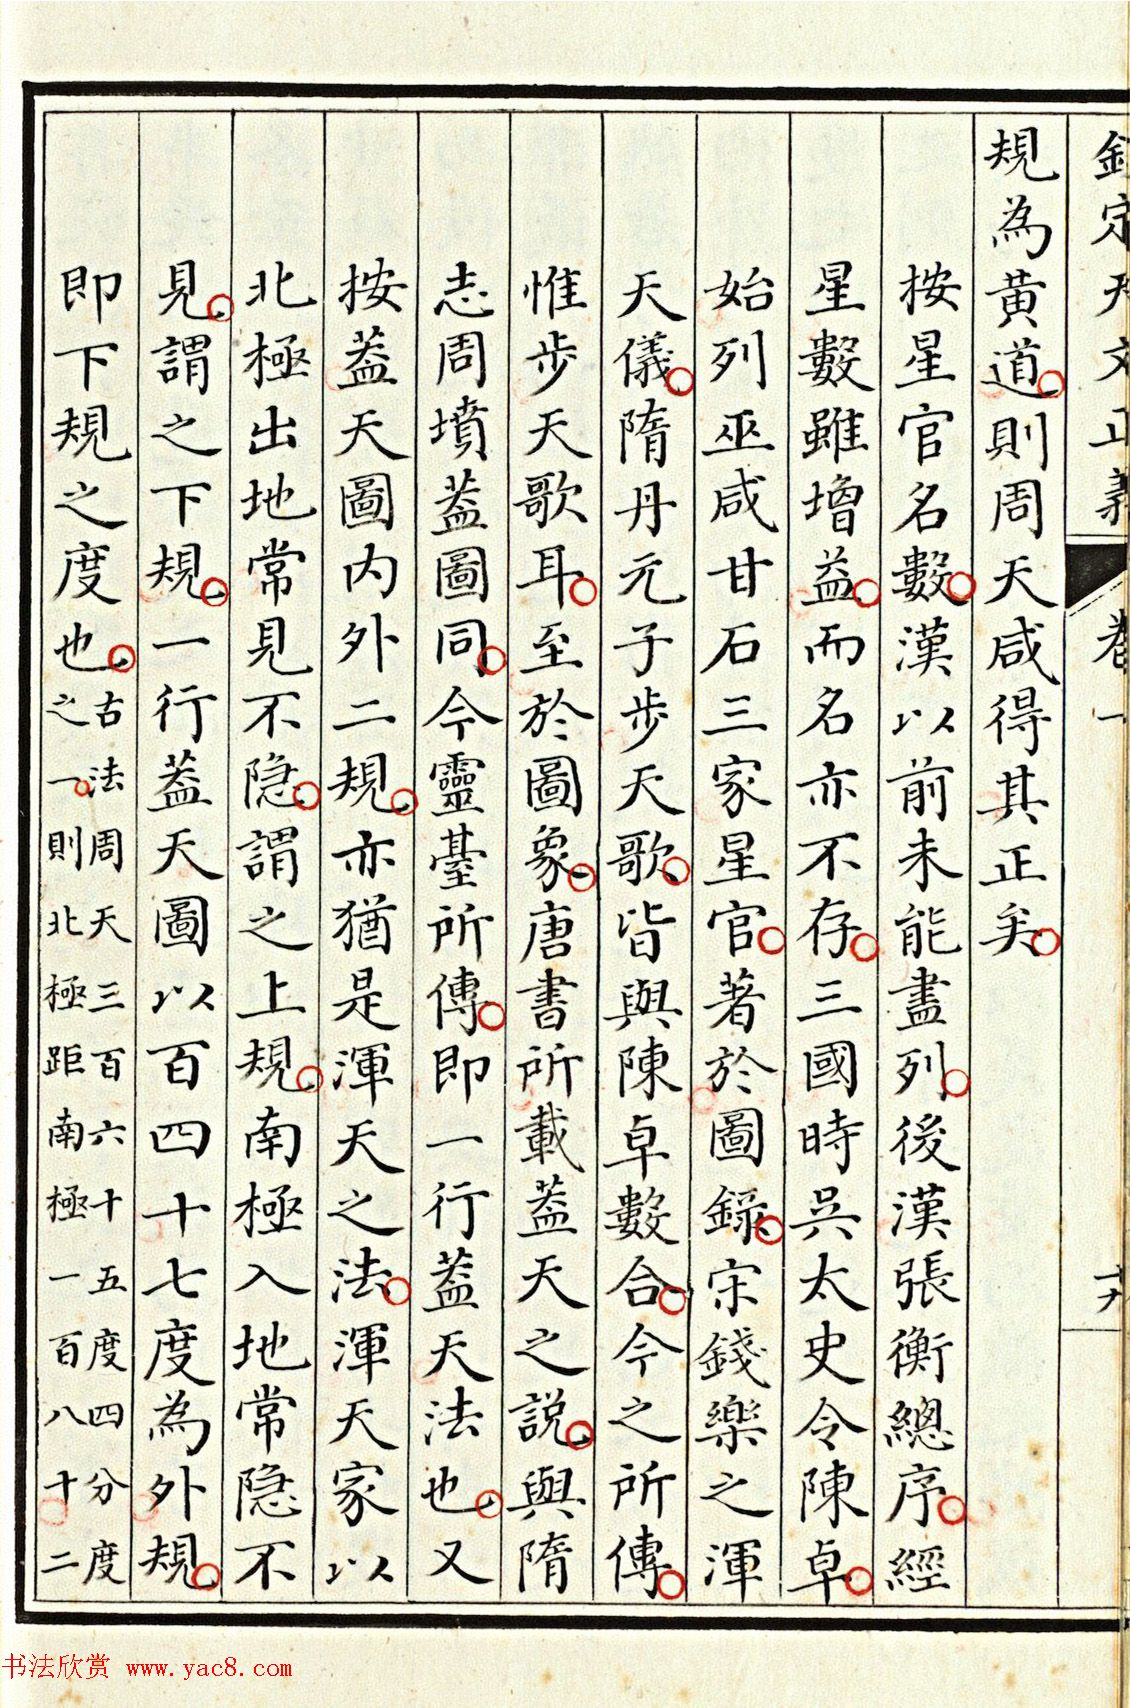 欽定天文正義
卷一
十九
規為黃道則周天咸得其正矣
按星官名數漢以前未能盡列後漢張衡總序經
星數雖增益而名亦不存三國時吳太史令陳卓
始列巫咸甘石三家星官著於圖錄宋錢樂之渾
天儀隋丹元子步天歌皆與陳卓數合今之所傳
惟步天歌耳至於圖象唐書所載葢天之説與隋
志周墳葢圖同今靈臺所傳即一行葢天法也又
按葢天圖内外二規亦猶是渾天之法渾天家以
北極出地常見不隐謂之上規南極入地常隐不
見謂之下規一行葢天圖以百四十七度為外規
即下規之度也
古法周天三百六十五度四分度
之一則北極距南極一百八十二
书法欣赏 www.yac8.com